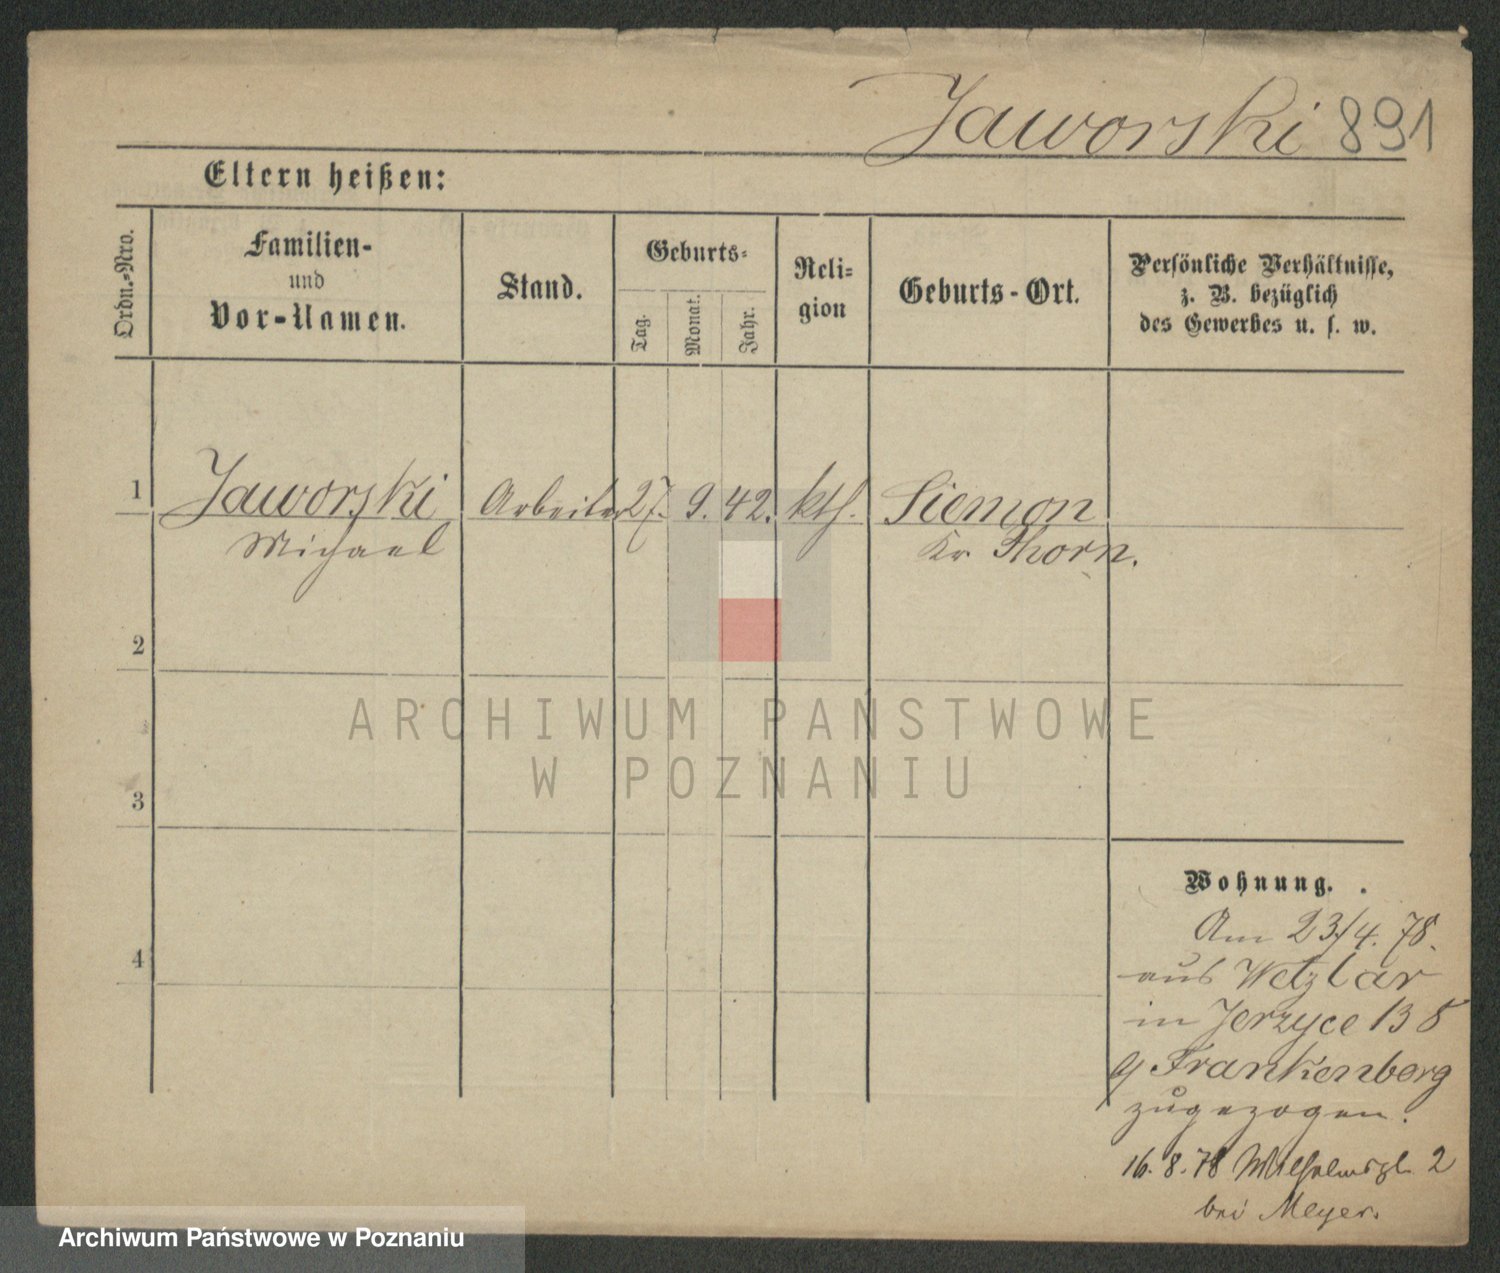 Jaworski 891
Eltern heißen:
Ordn.-Nro.
Familien-
und
Vor-Namen.
Stand.
Geburts-
Tag.
Monat.
Jahr.
Reli-
gion
Geburts-Ort.
Persönliche Verhältnisse,
z. B. bezüglich
des Gewerbes u. s. w.
1 Jaworski Arbeiter 27. 9. 42. kth. Siemon
Michael Kr Thorn.
2
3
4
ARCHIWUM PAŃSTWOWE
W POZNANIU
Wohnung.
Am 23/4. 78.
aus Wetzlar
in Jerzyce 13
Frankenberg
zugezogen.
16. 8. 78 Wilhelmspl. 2
bei Meyer.
Archiwum Państwowe w Poznaniu